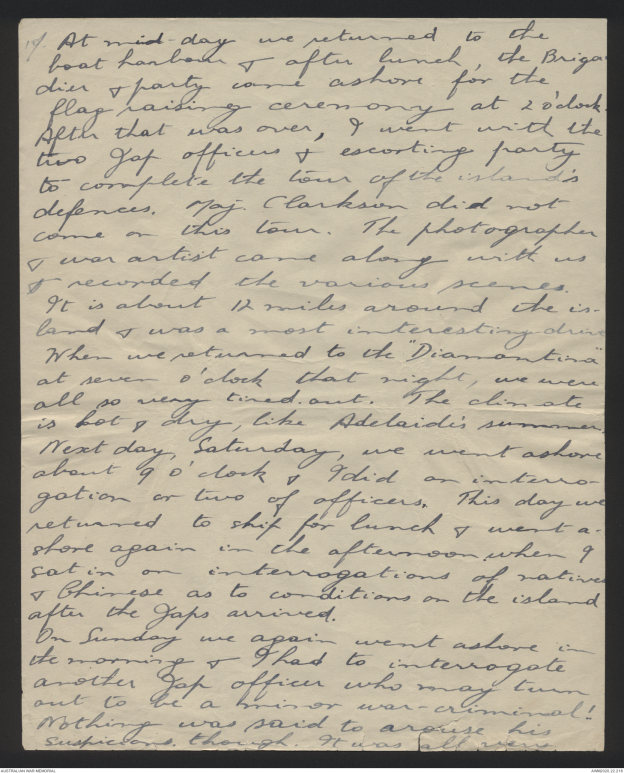 19. At mid-day we returned to the
boat harbour & after lunch, the Briga-
dier & party came ashore for the
flag raising ceremony at 2 o'clock.
After that was over, I went with the
two Jap officers & escorting party
to complete the tour of the island's
defences. Maj. Clarkson did not
come on this tour. The photographer
& war artist came along with us
& recorded the various scenes.
It is about 12 miles around the is-
land & was a most interesting drive
When we returned to the "Diamantina"
at seven o'clock that night, we were
all so very tired out. The climate
is hot & dry, like Adelaide's summer.
Next day, Saturday, we went ashore
about 9 o'clock & I did an interro-
gation or two of officers. This day we
returned to ship for lunch & went a-
shore again in the afternoon when I
sat in on interrogations of natives
& Chinese as to conditions on the island
after the Japs arrived.
On Sunday we again went ashore in
the morning & I had to interrogate
another Jap officer who may turn
out to be a minor war-criminal!
Nothing was said to arouse his
suspicions though. It was all very
AUSTRALIAN WAR MEMORIAL